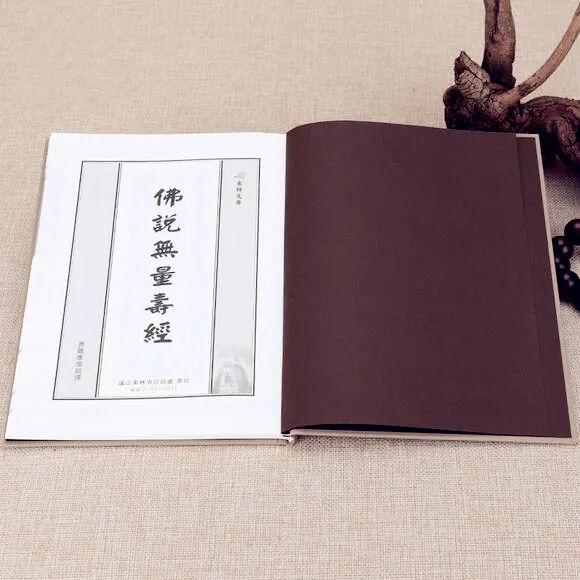 東林文库
佛說無量壽經
曹魏康僧鎧譯
廬山東林寺印經處 恭印